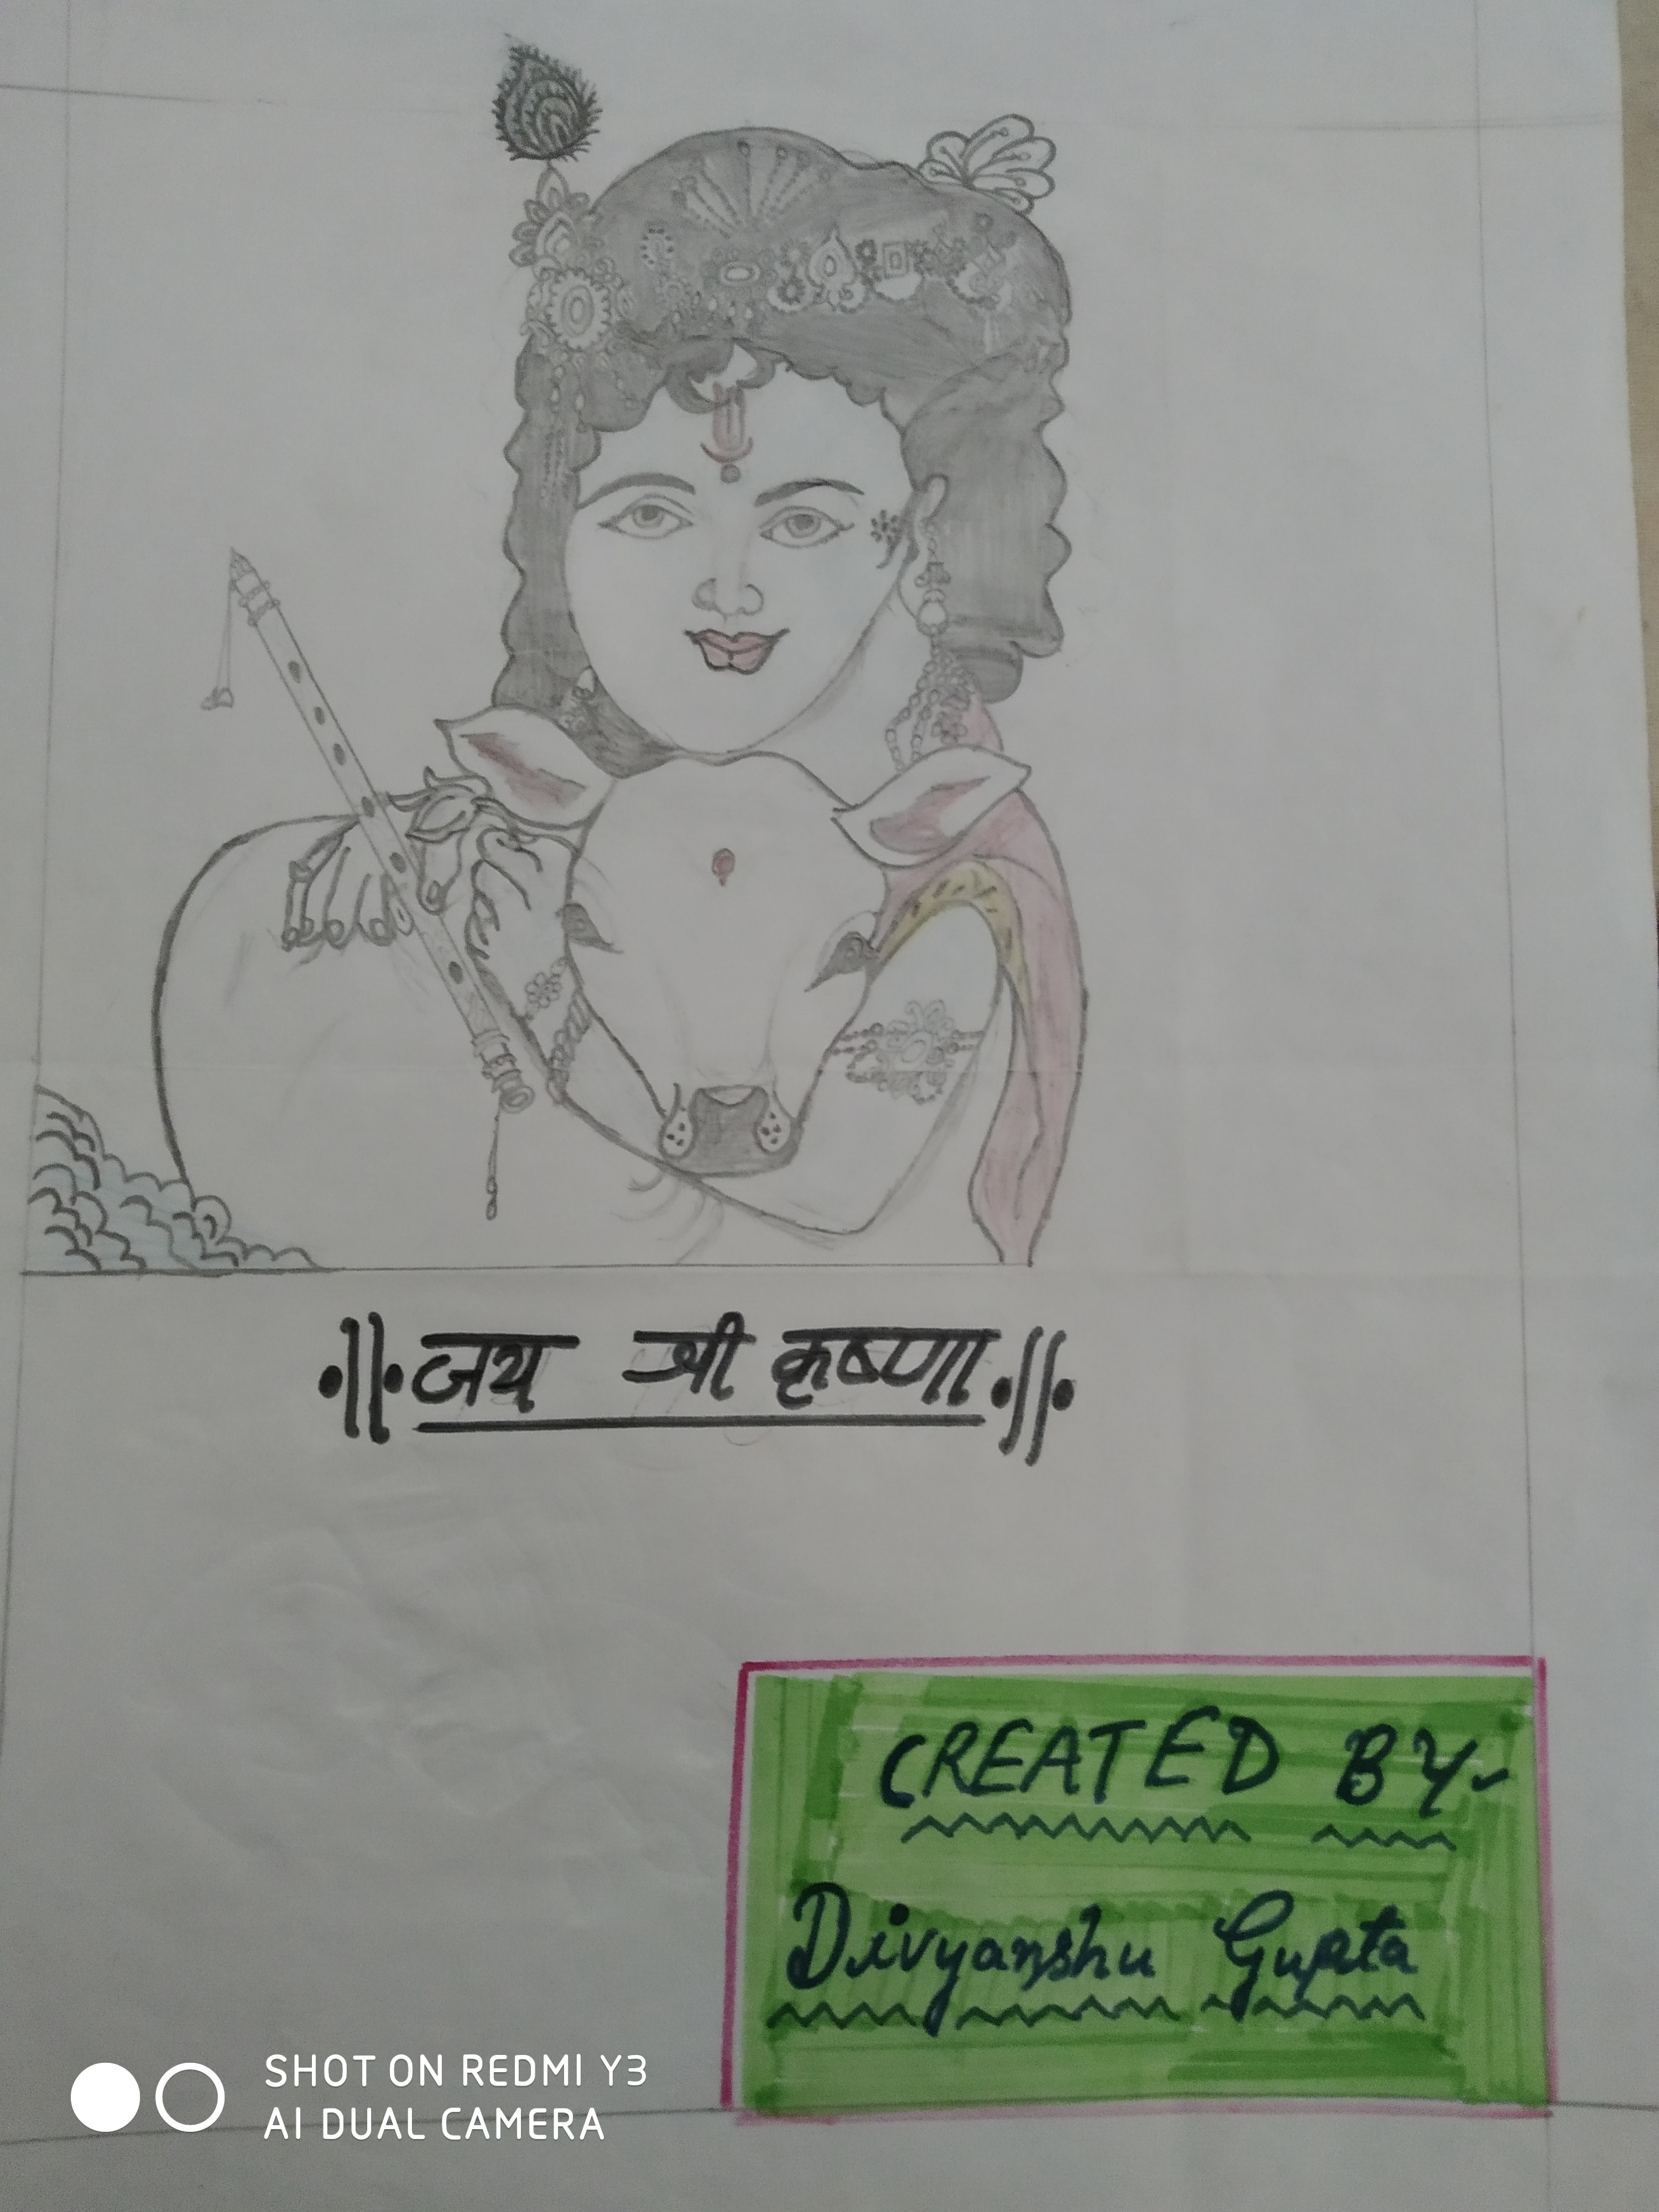 ॥ जय श्री कृष्णा ॥
CREATED BY-
Divyanshu Gupta
SHOT ON REDMI Y3
AI DUAL CAMERA